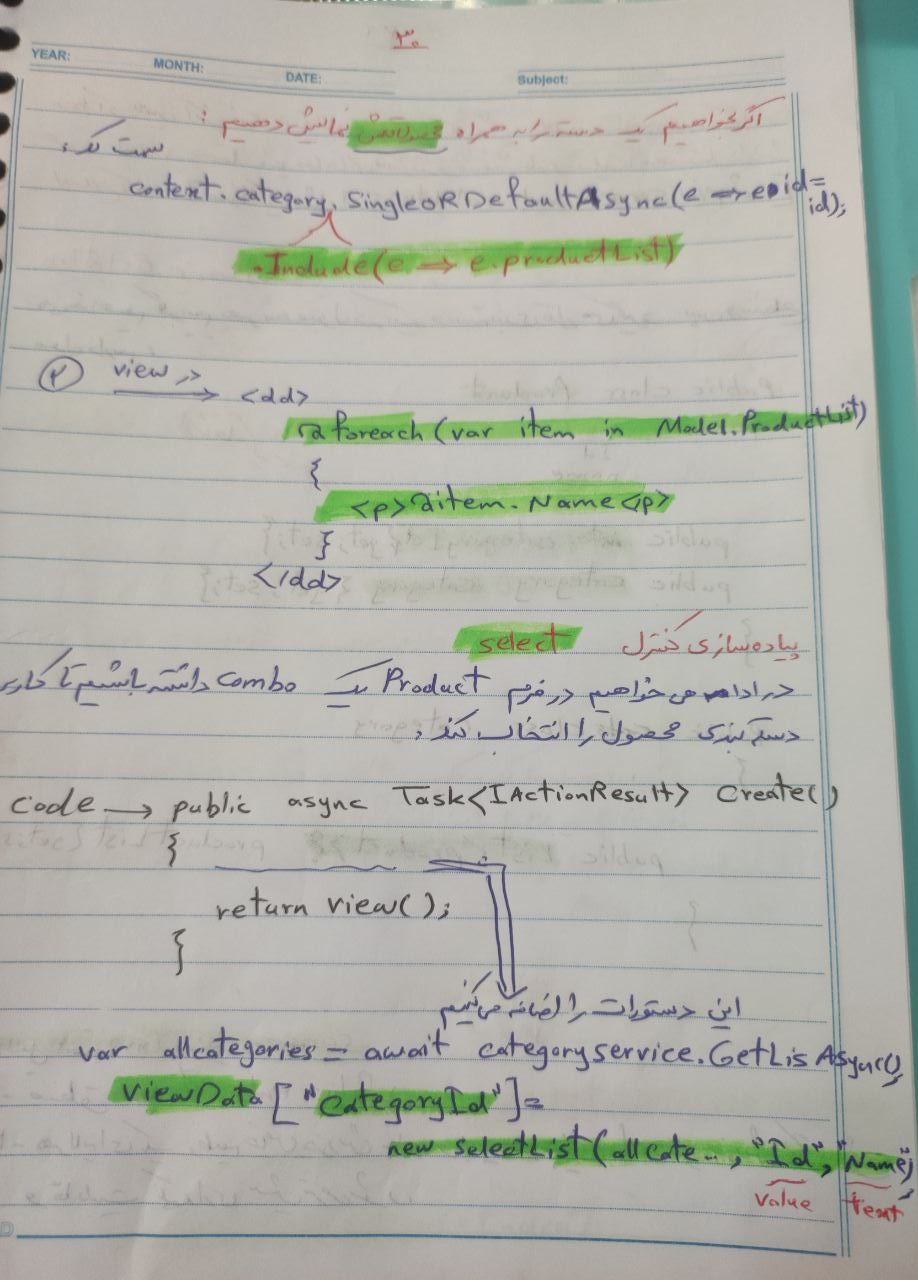 ۳۰
YEAR: MONTH: DATE: Subject:
اگر بخواهیم یک دسته را به همراه محصولاتش نمایش دهیم :
سمت کد،
context.category.SingleORDefaultAsync(e => e.id = id);
.Include(e => e.productList)
۲ view در <dd>
@foreach(var item in Model.ProductList)
{
<p>@item.Name<p>
}
</dd>
پیاده سازی کنترل select
در ادامه می خواهیم در فرم Product یک Combo داشته باشیم تا کاربر
دسته بندی محصول را انتخاب کند.
Code → public async Task<IActionResult> Create()
{
return view();
}
این دستورات را اضافه می کنیم
var allcategories = await categoryservice.GetLisAsync();
viewData["CategoryId"]=
new selectList(allcate..., "Id", "Name");
value text